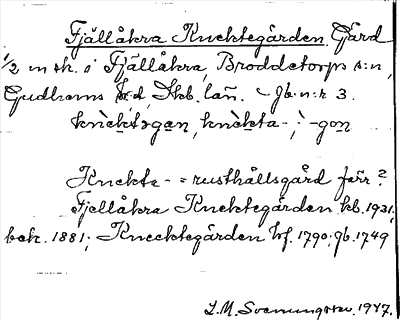 Fjällåkra Knektegården, Gård
1/2 m sk. i Fjällåkra, Broddetorps s:n,
Gudhems hd, Skb. län. Jb. n:r 3.
knɛ̀ktəgan, knɛ̀kta-; -gon
Knekte- = rusthållsgård förr?
Fjellåkra Knektegården kb. 1931,
bek. 1881; Kneektegården hf. 1790; jb. 1749
L. M. Svenungsson. 1947.